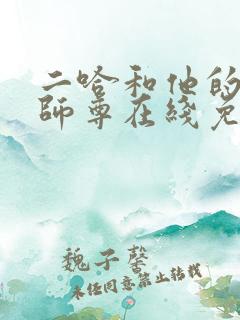 二哈和他的
師尊在綫免
魏子馨
未经同意禁止转载